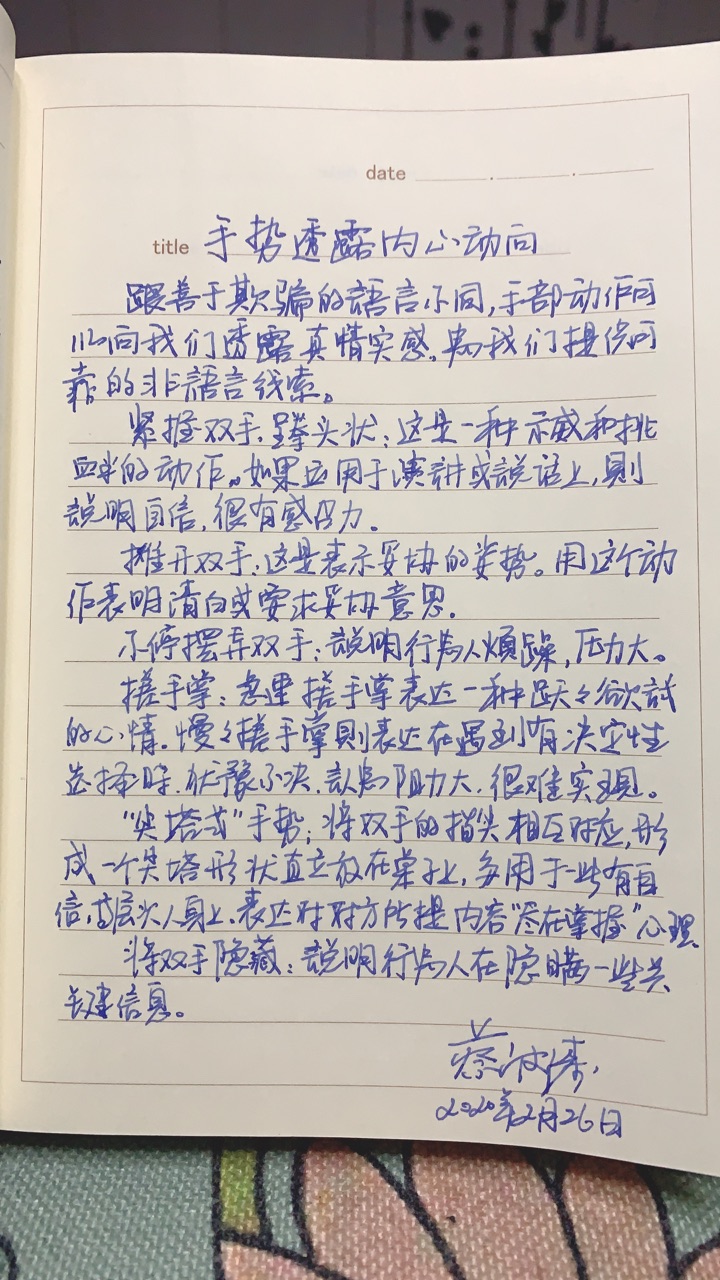 date
title 手势透露内心动向
跟善于欺骗的語言不同,手部动作可
以向我们透露真情实感。為我们提供可
靠的非語言线索。
紧握双手,呈拳头状:这是一种示威和挑
衅的动作。如果运用于演讲或說话上,則
說明自信,很有感召力。
摊开双手:这是表示妥协的姿势。用这个动
作表明清白或要求妥协意思.
不停摆弄双手:說明行為人煩躁,压力大。
搓手掌:急速搓手掌表达一种跃々欲試
的心情.慢々搓手掌則表达在遇到有决定性
选择時.犹豫不决.認為阻力大.很难实現。
“尖塔式”手势:将双手的指尖相互对应,形
成一个尖塔形状直立放在桌子上,多用于一些有自
信,高层次人身上.表达对对方所提内容“尽在掌握”心理.
将双手隐藏:說明行為人在隐瞒一些关
键信息。
蔡
2020年2月26日